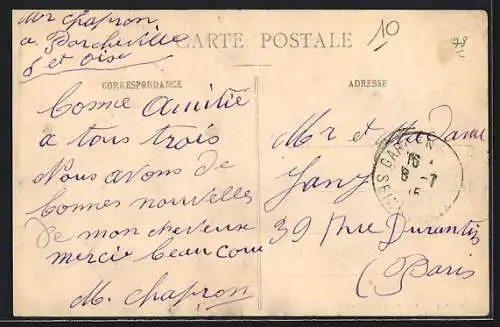 Mr Chapron
a Porcheville
S et Oise
10
CARTE POSTALE
CORRESPONDANCE
ADRESSE
Bonne Amitié
a tous trois
Nous avons de
bonnes nouvelles
de mon cheveux
mercie beaucou
M. Chapron
Mr et Madame
Jany
39 Rue Durantin
(Paris
16
8 -7
15